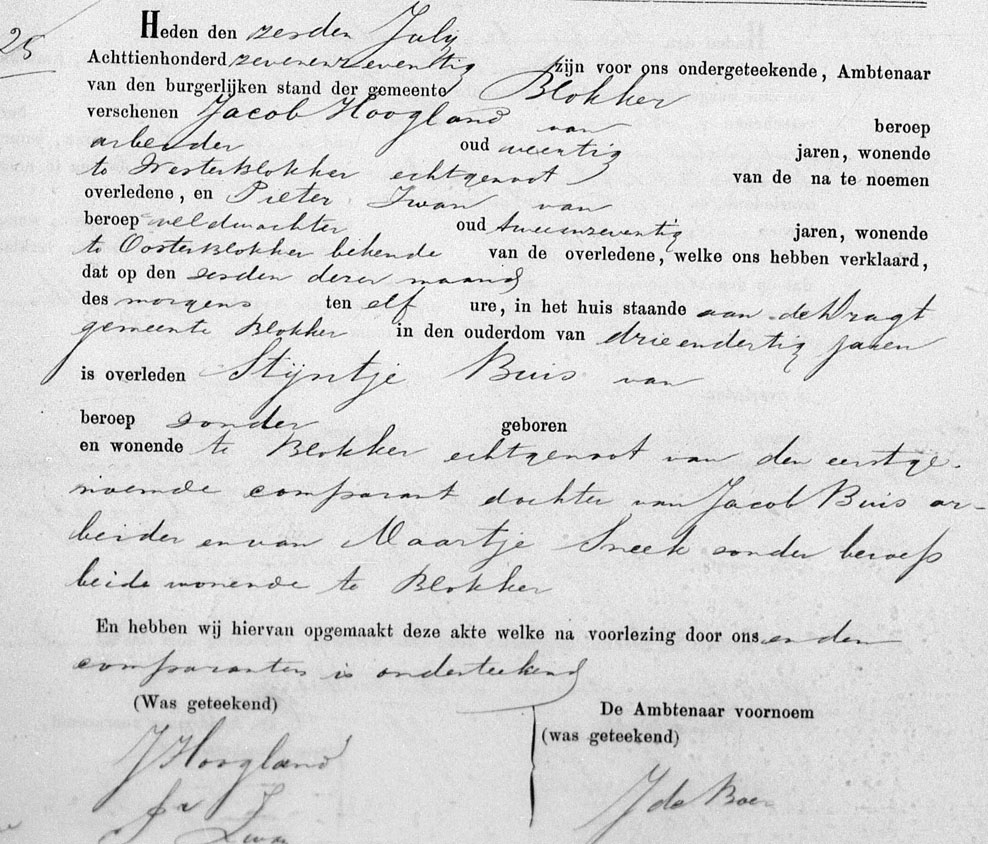 25
Heden den zesden July
Achttienhonderd zevenenzeventig zijn voor ons ondergeteekende, Ambtenaar
van den burgerlijken stand der gemeente Blokker
verschenen Jacob Hoogland van beroep
arbeider oud veertig jaren, wonende
te Westerblokker echtgenoot van de na te noemen
overledene, en Pieter Zwan van
beroep veldwachter oud tweeenzeventig jaren, wonende
te Oosterblokker bekende van de overledene, welke ons hebben verklaard,
dat op den zesden dezer maand
des morgens ten elf ure, in het huis staande aan de Dragt
gemeente Blokker in den ouderdom van drieendertig jaren
is overleden Stijntje Buis van
beroep zonder geboren
en wonende te Blokker echtgenoot van den eerstge-
noemde comparant dochter van Jacob Buis ar-
beider en van Maartje Sneek zonder beroep
beide wonende te Blokker
En hebben wij hiervan opgemaakt deze akte welke na voorlezing door ons en den
comparanten is onderteekend
(Was geteekend) De Ambtenaar voornoem
(was geteekend)
J Hoogland
J de Boer
Zwan